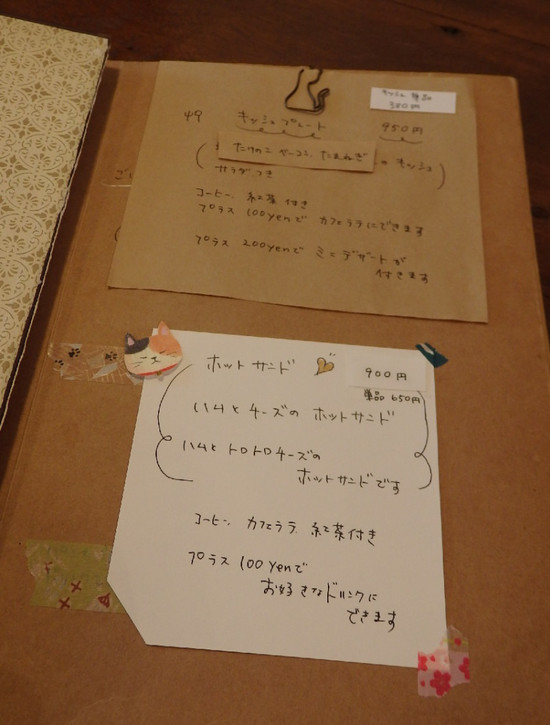 キッシュ 単品
380円
キッシュプレート 950円
たけのこ ベーコン たまねぎ のキッシュ
サラダつき
コーヒー、紅茶付き
プラス 100yenで カフェラテにできます
プラス 200yenで ミニデザートが
付きます
ホットサンド 900円
単品 650円
ハムとチーズの ホットサンド
ハムと トロトロチーズの
ホットサンドです
コーヒー、カフェラテ、紅茶付き
プラス 100yenで
お好きなドリンクに
できます